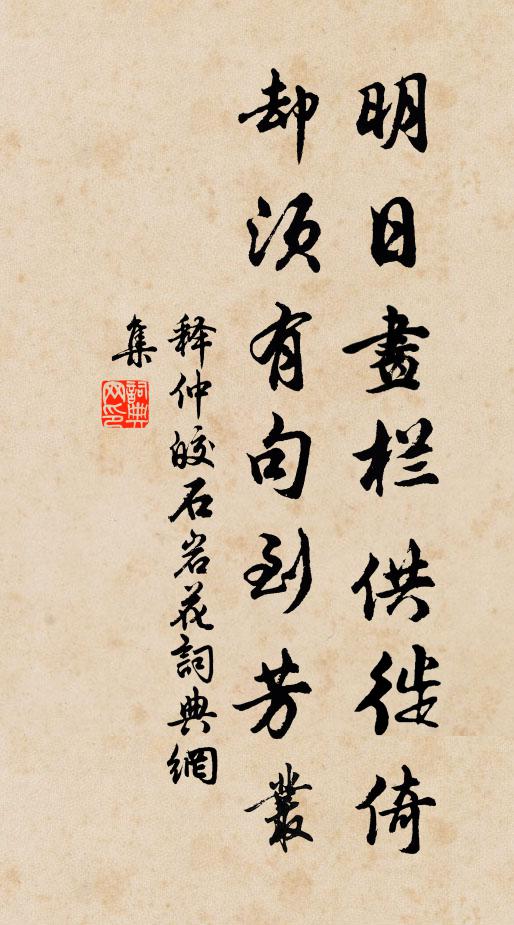 明日畫栏供徙倚
却须有句到芳叢
释仲皎石岩花詞典網
集
詞典网印